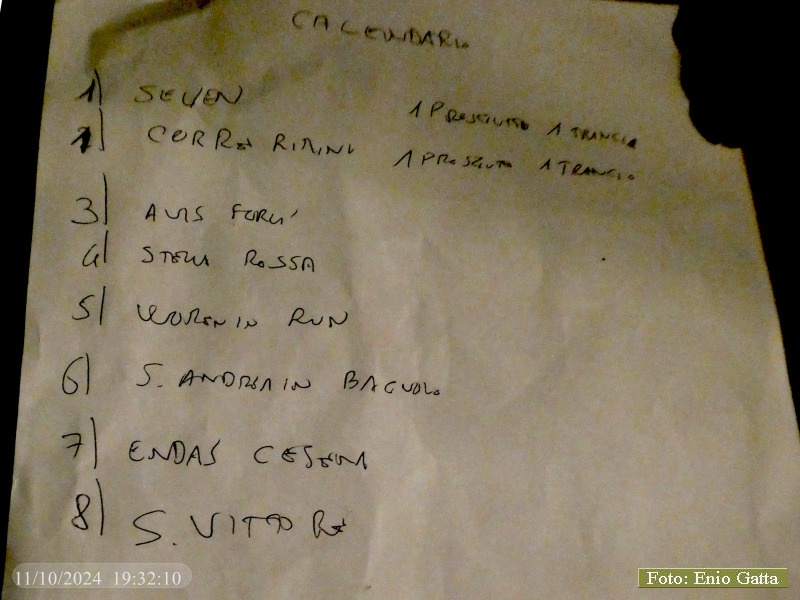 CALENDARIO
1) SEVEN 1 PROSCIUTTO 1 TRANCIO
2) CORRE RIMINI 1 PROSCIUTTO 1 TRANCIO
3) AVIS FORLI'
4) STELLA ROSSA
5) WOMEN IN RUN
6) S. ANDREA IN BAGNOLO
7) ENDAS CESENA
8) S. VITTORE
11/10/2024 19:32:10
Foto: Enio Gatta